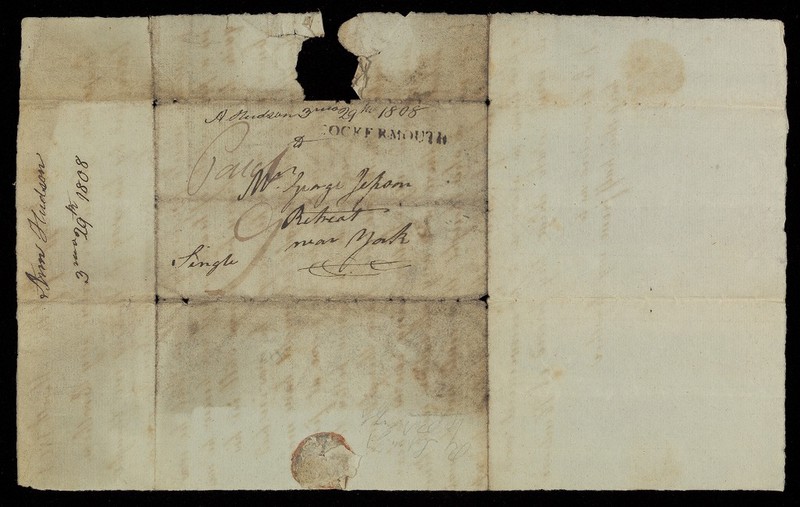 Ann Hudson
3 mo 29th 1808
A Hudson 3 mo 29th 1808
COCKERMOUTH
Paid
To
Mr. George Jepson
9
Retreat
near York
Single